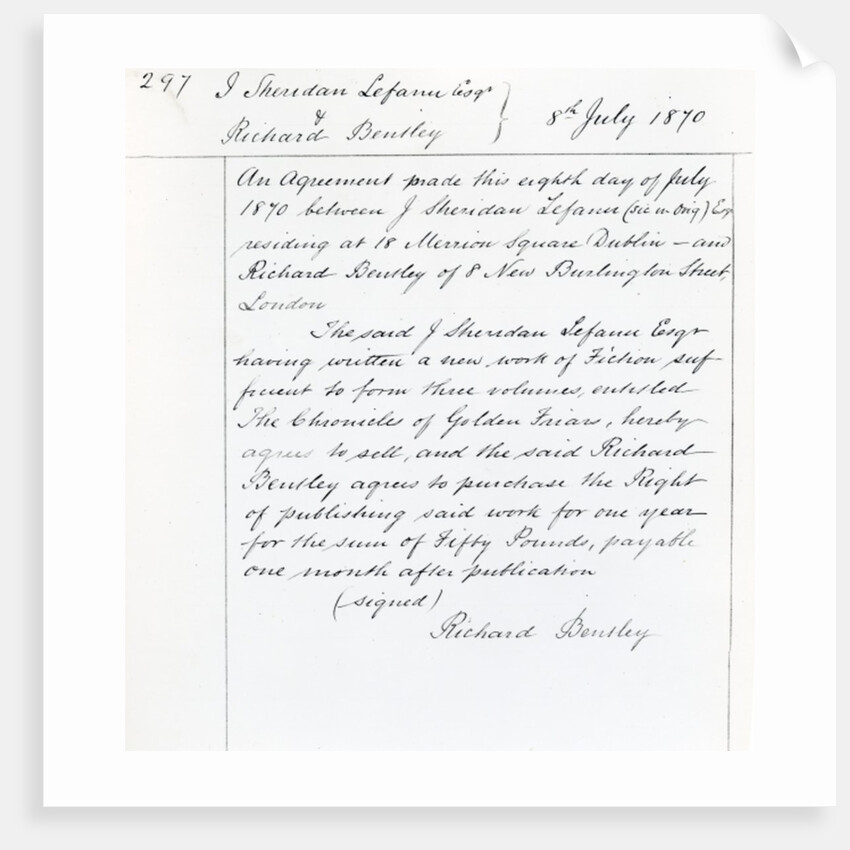 297 J Sheridan Lefanu Esqr
&
Richard Bentley } 8th July 1870
An Agreement made this eighth day of July
1870 between J Sheridan Lefanu (sic in Orig) Esqr
residing at 18 Merrion Square Dublin – and
Richard Bentley of 8 New Burlington Street,
London
The said J Sheridan Lefanu Esqr
having written a new work of Fiction suf-
ficient to form three volumes, entitled
The Chronicles of Golden Friars, hereby
agrees to sell, and the said Richard
Bentley agrees to purchase the Right
of publishing said work for one year
for the sum of Fifty Pounds, payable
one month after publication
(signed)
Richard Bentley